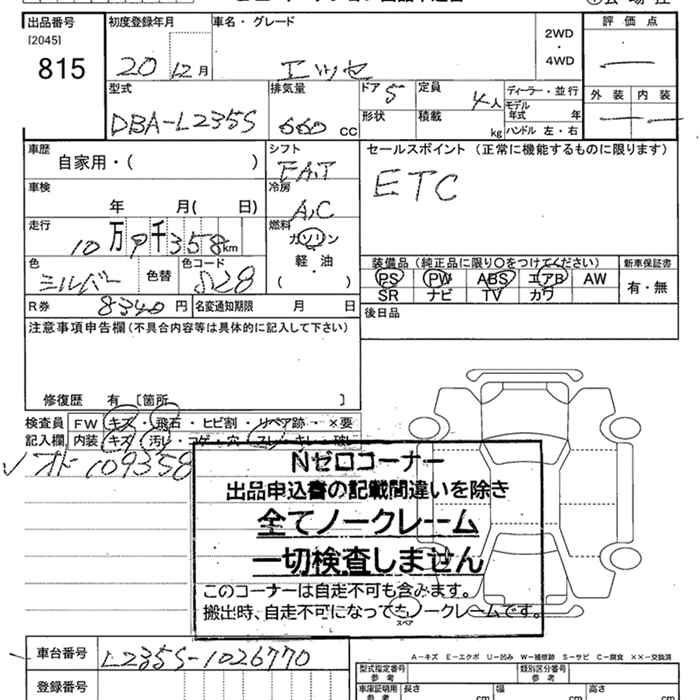 出品番号 初度登録年月 車名・グレード 評価点
[2045]
815
20 12月 エッセ 2WD・4WD
外装 内装
型式 排気量 ドア 定員 ディーラー・並行
DBA-L235S 660 CC 5 4人 モデル年式 年
形状 積載 kg ハンドル 左・右
車歴 シフト セールスポイント (正常に機能するものに限ります)
自家用・( ) FAT ETC
車検 冷房
年 月( 日) A,C
走行 燃料
10万9千358km ガソリン
軽・油
( )
色 色替 色コード
シルバー S28
装備品(純正品に限り○をつけてください) 新車保証書
PS PW ABS エアB AW 有・無
SR ナビ TV カワ
R券 8340円 名変通知期限 月 日
後日品
注意事項申告欄(不具合内容等は具体的に記入して下さい)
修復歴 有 [箇所 ]
検査員 FW キズ・飛石・ヒビ割・リペア跡・×要
記入欄 内装 キズ・汚レ・コゲ・穴・スレ・キレ・破レ
オド109358
Nゼロコーナー
出品申込書の記載間違いを除き
全てノークレーム
一切検査しません
このコーナーは自走不可も含みます。
搬出時、自走不可になってもノークレームです。
スペア
A-キズ E-エクボ U-凹み W-補修跡 S-サビ C-腐食 ××-交換済
車台番号 L235S-1026770
型式指定番号 参考 類別区分番号 参考
登録番号
車庫証明用 参考 長さ cm 幅 cm 高さ cm